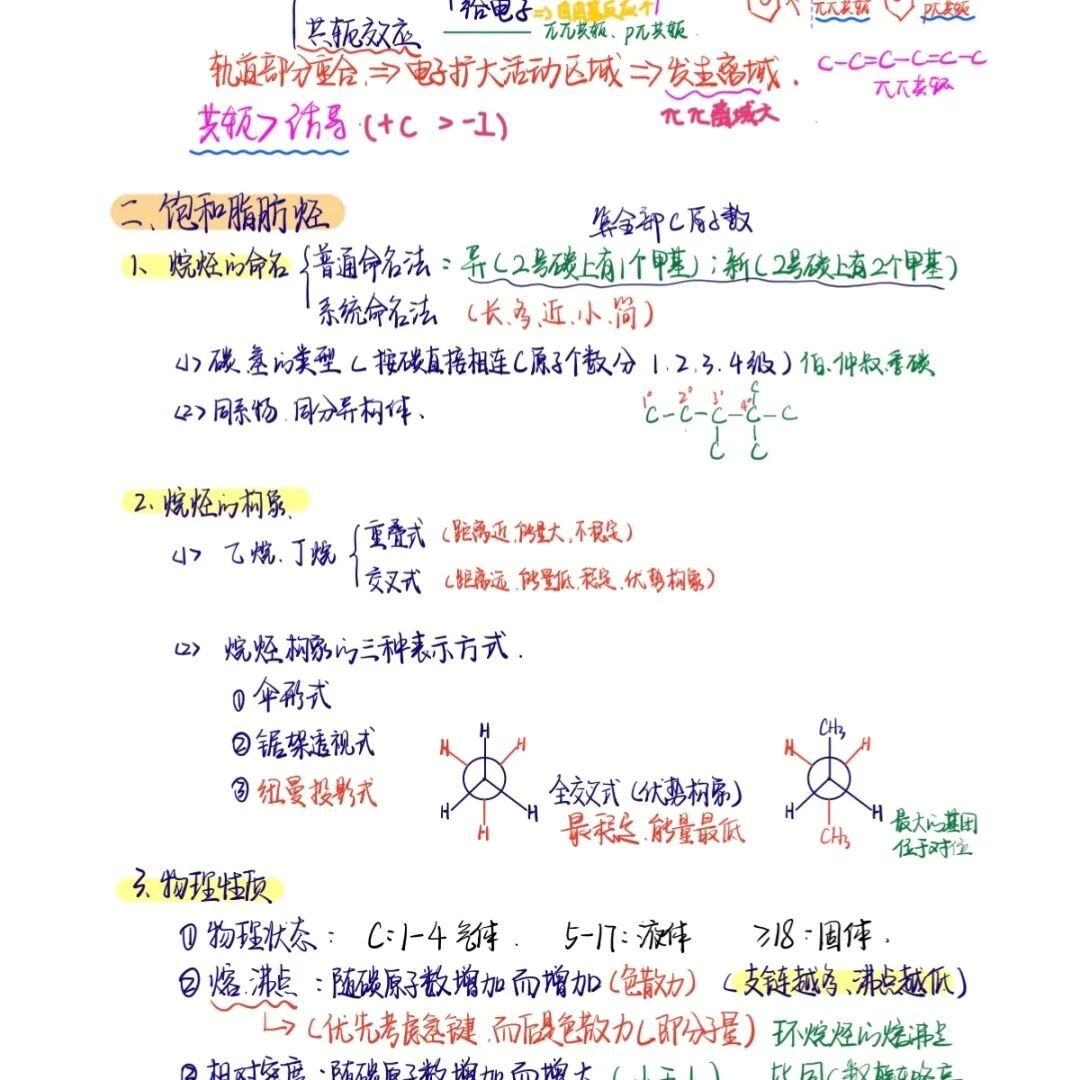 给电子
共轭效应 ππ共轭、pπ共轭. ππ共轭 pπ共轭
轨道部分重合, ⇒ 电子扩大活动区域 ⇒ 发生离域. C-C=C-C=C-C
ππ离域大 ππ共轭
共轭>诱导 (+C >-I)
二、饱和脂肪烃
算全部C原子数
1、烷烃的命名 普通命名法: 异(2号碳上有1个甲基); 新(2号碳上有2个甲基)
系统命名法 (长、多、近、小、简)
(1) 碳、氢的类型 (按碳直接相连C原子个数分 1.2.3.4级) 伯、仲叔季碳
(2) 同系物、同分异构体.
1° 2° 3° 4° C
C-C-C-C-C
C C
2、烷烃的构象
(1) 乙烷、丁烷 重叠式 (距离近,能量大,不稳定)
交叉式 (距离远,能量低,稳定、优势构象)
(2) 烷烃构象的三种表示方式.
① 伞形式
② 锯架透视式 H H H H CH3 H
③ 纽曼投影式 H H H 全交叉式 (优势构象) H CH3 H
最稳定,能量最低 最大的基团
位于对位
3、物理性质
① 物理状态: C:1-4气体. 5-17:液体 ≥18:固体.
② 熔、沸点: 随碳原子数增加而增加 (色散力) (支链越多、沸点越低)
↳ (优先考虑氢键,而后是色散力(即分子量) 环烷烃的熔沸点
③ 相对密度: 随碳原子数增加而增大 (小于1)